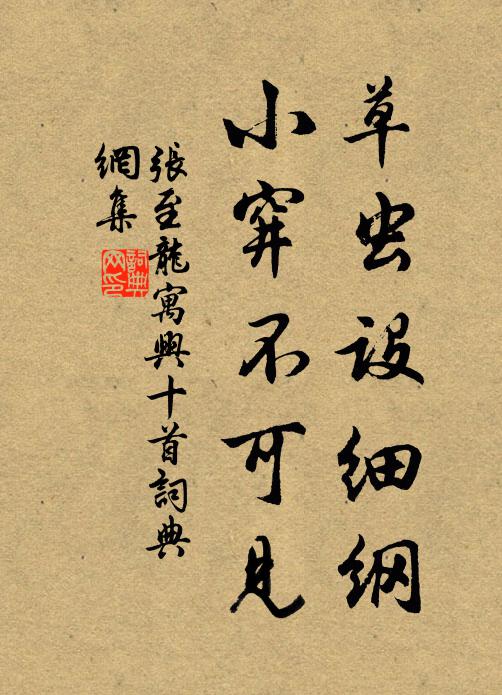 草虫設細綱
小穽不可見
張至龍寓興十首詞典
網集
詞典
网印